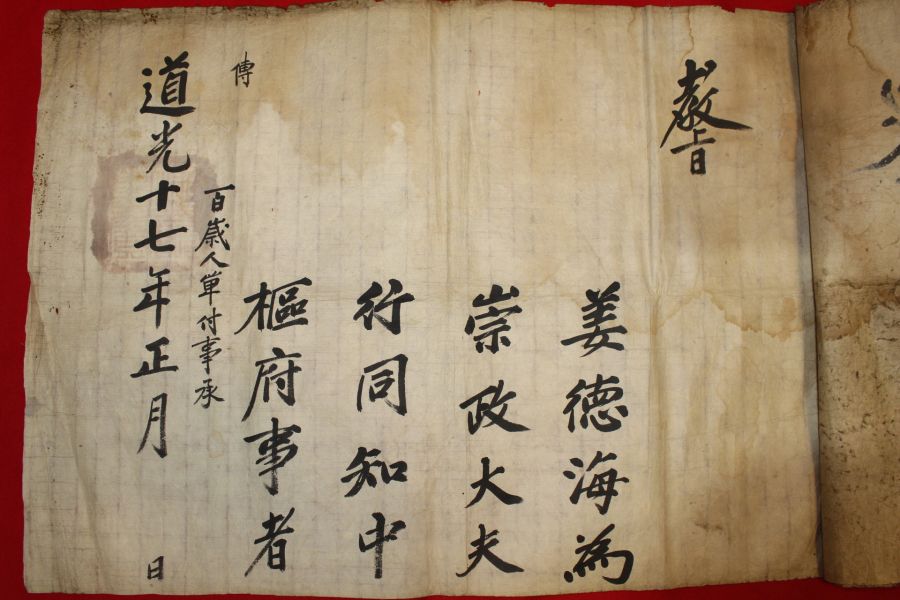 敎旨
姜德海爲
崇政大夫
行同知中
樞府事者
百歲人單付事承
傳
道光十七年正月日